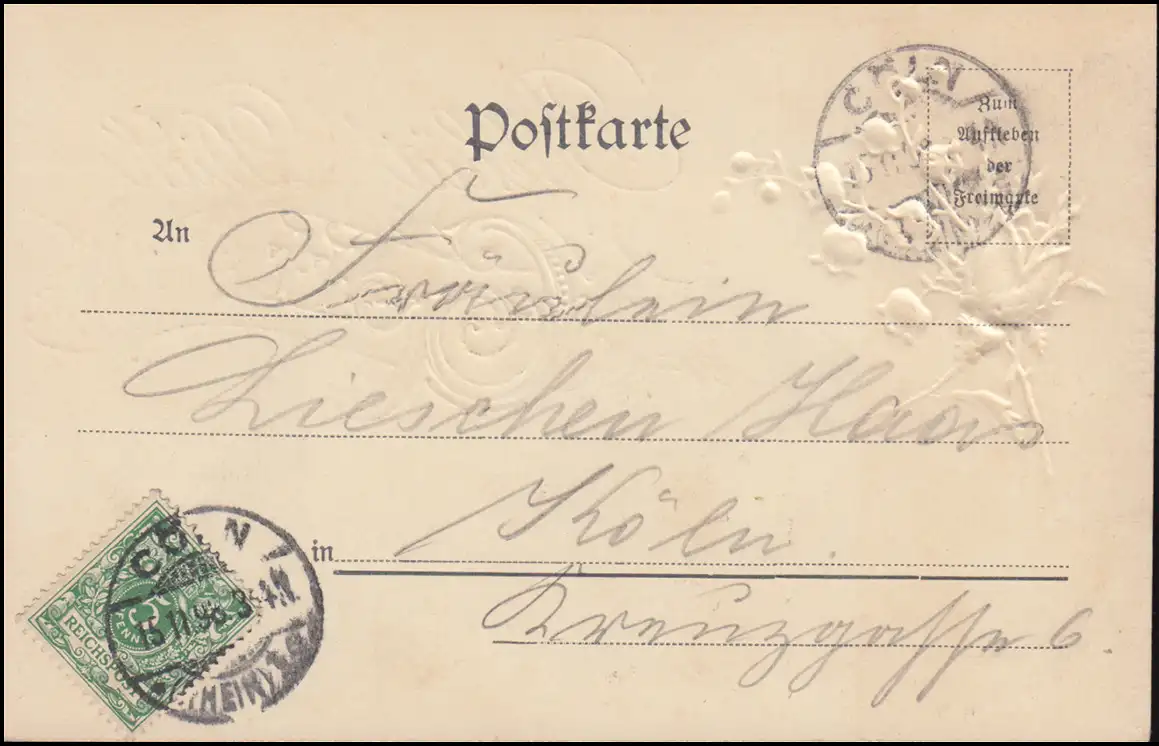 Postkarte
CÖLN
Zum
Aufkleben
der
Freimarke
An
Fräulein
Lieschen Haas
in Köln.
Kreuzgasse 6
CÖLN
15.11.98
(RHEIN)
5
PFENNIG
REICHSPOST